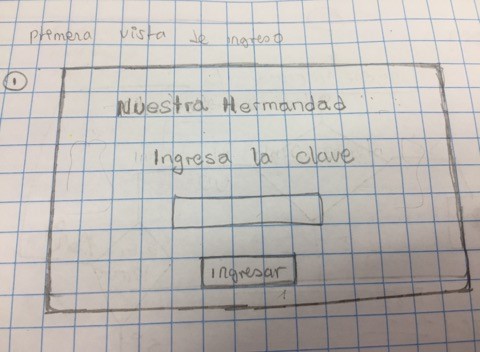 primera vista de ingreso
1
Nuestra Hermandad
Ingresa la clave
ingresar
1